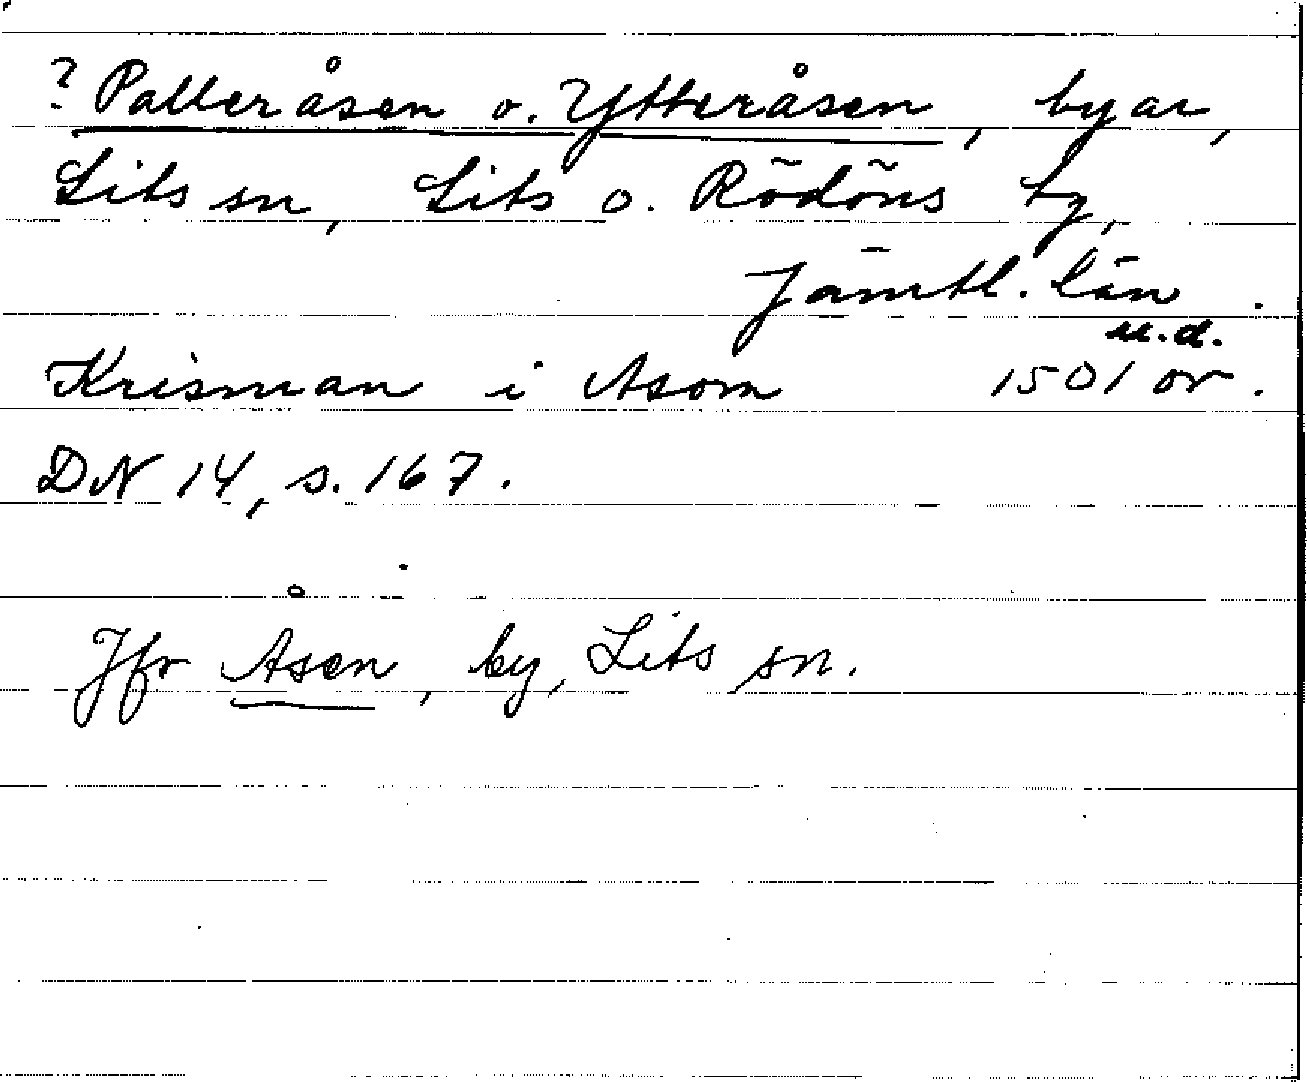 ? Palleråsen o. Ytteråsen, byar,
Lits sn, Lits o. Rödöns tg,
Jämtl. län.
u.d.
Krisman i Asom 1501 or.
DN 14, s. 167.
Jfr Åsen, by, Lits sn.